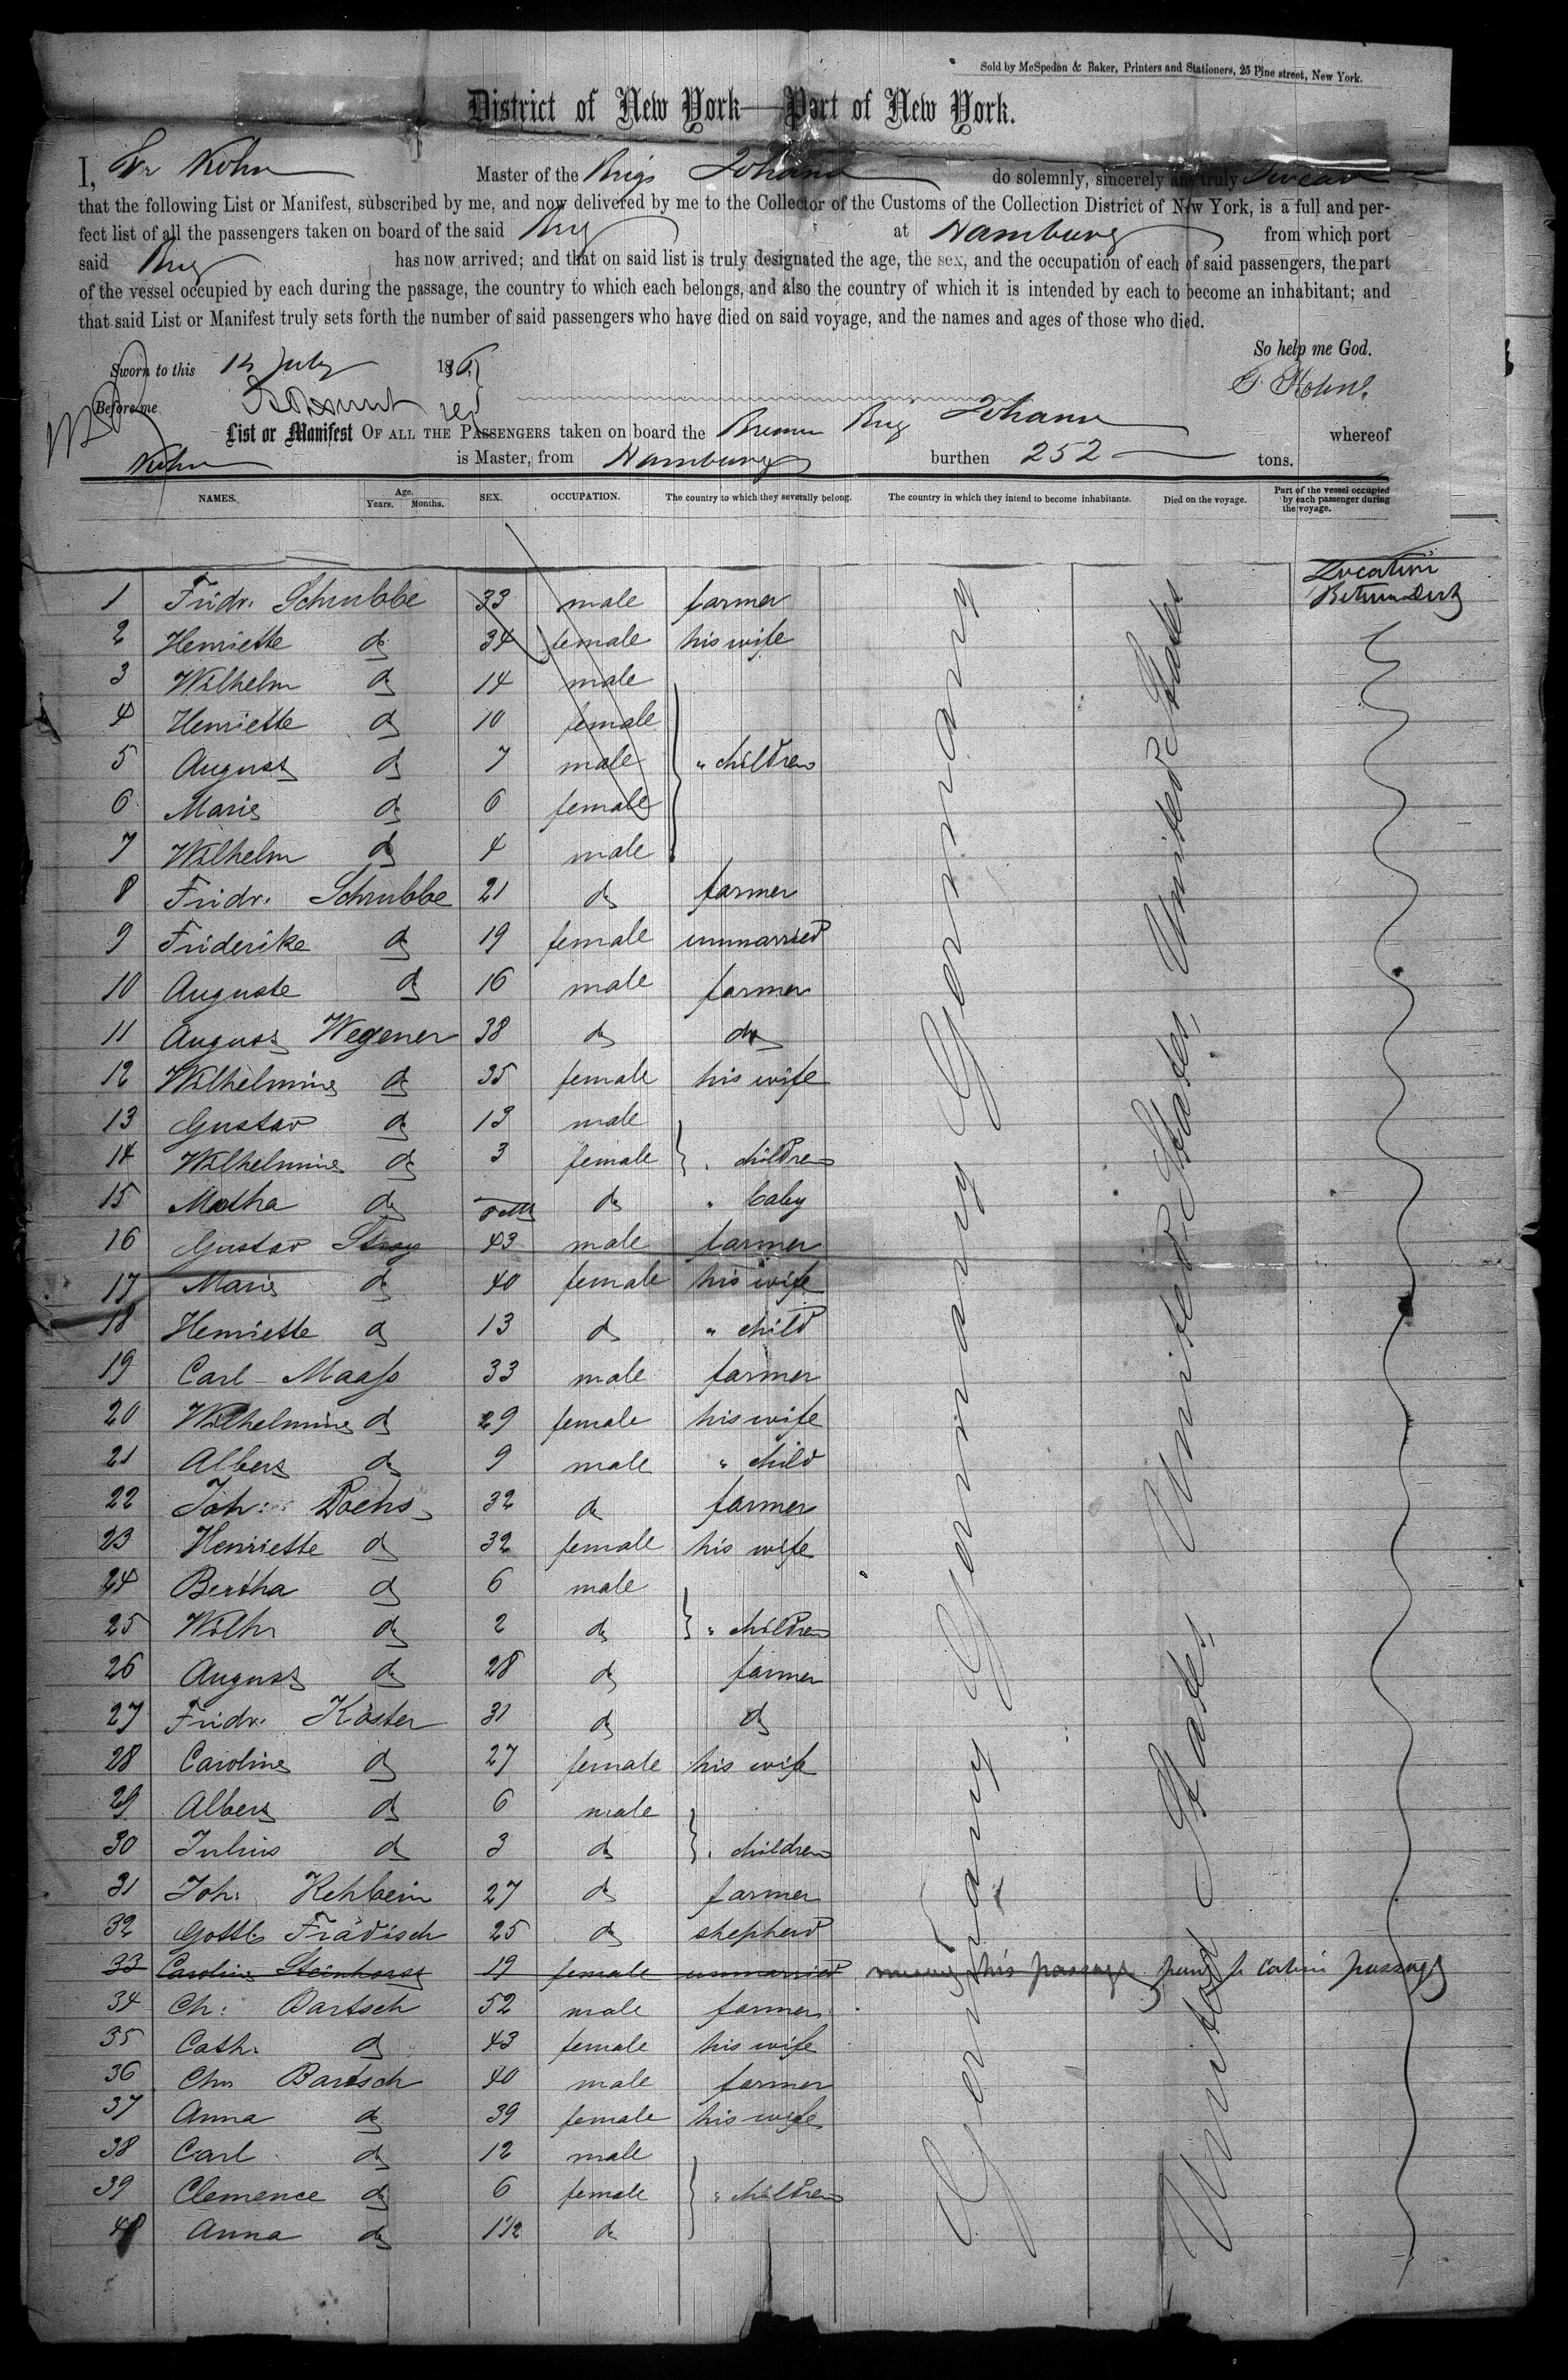 Sold by McSpedon & Baker, Printers and Stationers, 25 Pine street, New York.
District of New York—Port of New York.
I, Kohn Master of the Brig Johann do solemnly, sincerely and truly swear
that the following List or Manifest, subscribed by me, and now delivered by me to the Collector of the Customs of the Collection District of New York, is a full and per-
fect list of all the passengers taken on board of the said Brig at Hamburg from which port
said Brig has now arrived; and that on said list is truly designated the age, the sex, and the occupation of each of said passengers, the part
of the vessel occupied by each during the passage, the country to which each belongs, and also the country of which it is intended by each to become an inhabitant; and
that said List or Manifest truly sets forth the number of said passengers who have died on said voyage, and the names and ages of those who died.
So help me God.
Sworn to this July 186
Before me
List or Manifest OF ALL THE PASSENGERS taken on board the Bremen Brig Johann whereof
Kohn is Master, from Hamburg burthen 252 tons.
NAMES. Age. Years. Months. SEX. OCCUPATION. The country to which they severally belong. The country in which they intend to become inhabitants. Died on the voyage. Part of the vessel occupied by each passenger during the voyage.
Location
1 Fridr. Schrubbe 33 male farmer
2 Henriette do 34 female his wife
3 Wilhelm do 14 male
4 Henriette do 10 female
5 August do 7 male " children
6 Marie do 6 female
7 Wilhelm do 4 male
8 Fridr. Schrubbe 21 do farmer
9 Friderike do 19 female unmarried
10 Auguste do 16 male farmer
11 August Wegener 38 do do
12 Wilhelmine do 35 female his wife
13 Gustav do 13 male
14 Wilhelmine do 3 female " children
15 do do " baby
16 Gustav 43 male farmer
17 Marie do 40 female his wife
18 Henriette do 13 do " child
19 Carl Maass 33 male farmer
20 Wilhelmine do 29 female his wife
21 Albert do 9 male " child
22 Joh: 32 do farmer
23 Henriette do 32 female his wife
24 Bertha do 6 male
25 Wilh do 2 do " children
26 August do 28 do farmer
27 Fridr. Köster 31 do do
28 Caroline do 27 female his wife
29 Albert do 6 male
30 Julius do 3 do " children
31 Joh. Rehbein 27 do farmer
32 Gottl. Frädisch 25 do shepherd
33 Caroline Steinhorst 19 female unmarried his passage passage
34 Ch: Bartsch 52 male farmer
35 Cath. do 43 female his wife
36 Chr Bartsch 40 male farmer
37 Anna do 39 female his wife
38 Carl do 12 male
39 Clemence do 6 female " children
40 Anna do 1 1/2 do
Germany Germany Germany Germany
United States United States United States United States